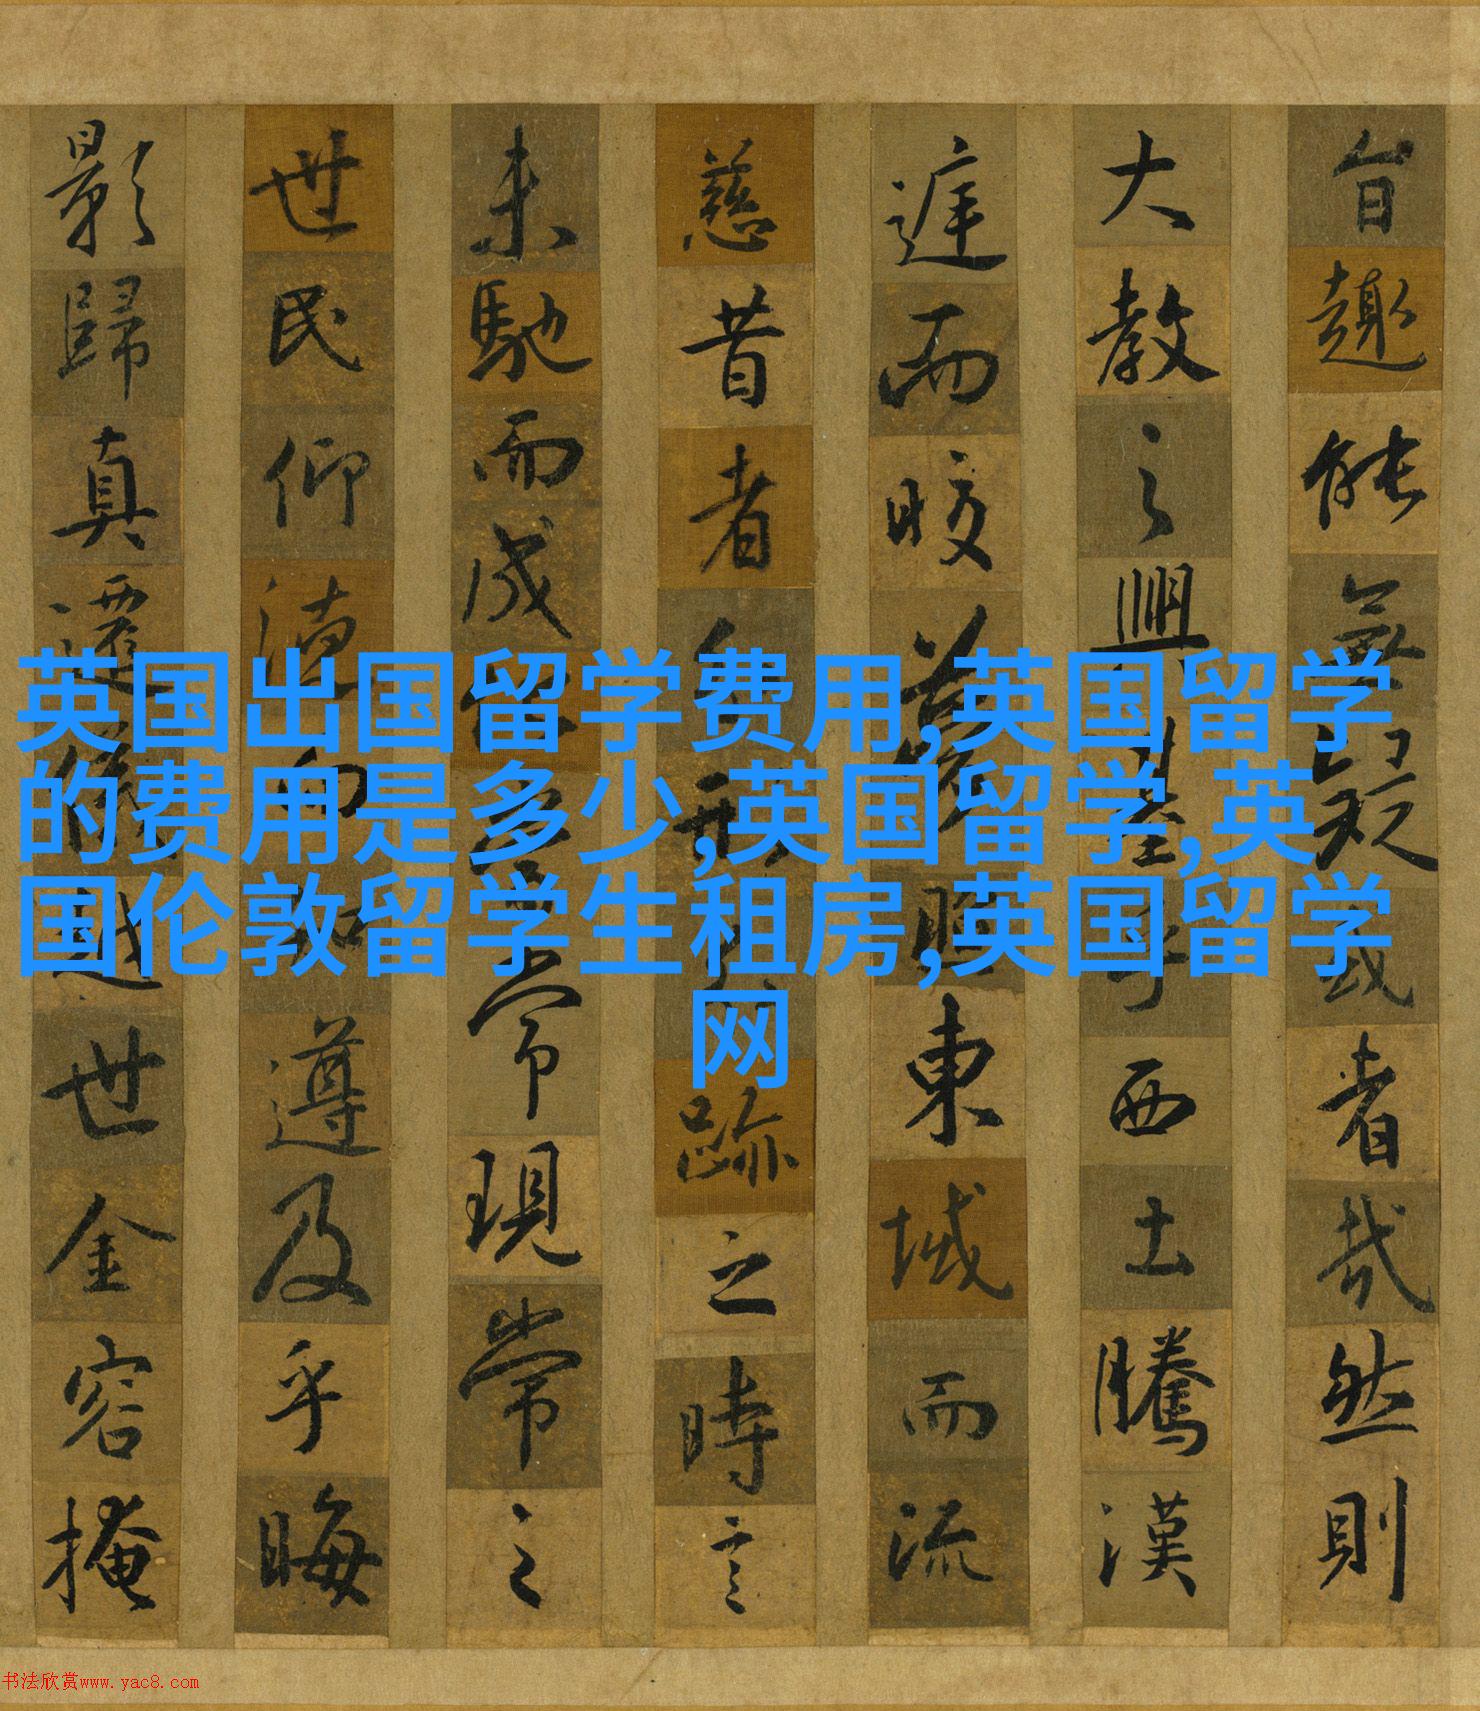 英国出国留学费用,英国留学
的费用是多少,英国留学,英
国伦敦留学生租房,英国留学
网
旨趣能無疑或者哉然則
大教之興基乎西土騰漢
庭而皎照東域而流
慈昔者形跡之時言
未馳而成常現常之
世民仰德而知遵及乎晦
影歸真遷儀越世金容掩
书法欣赏www.yac8.com